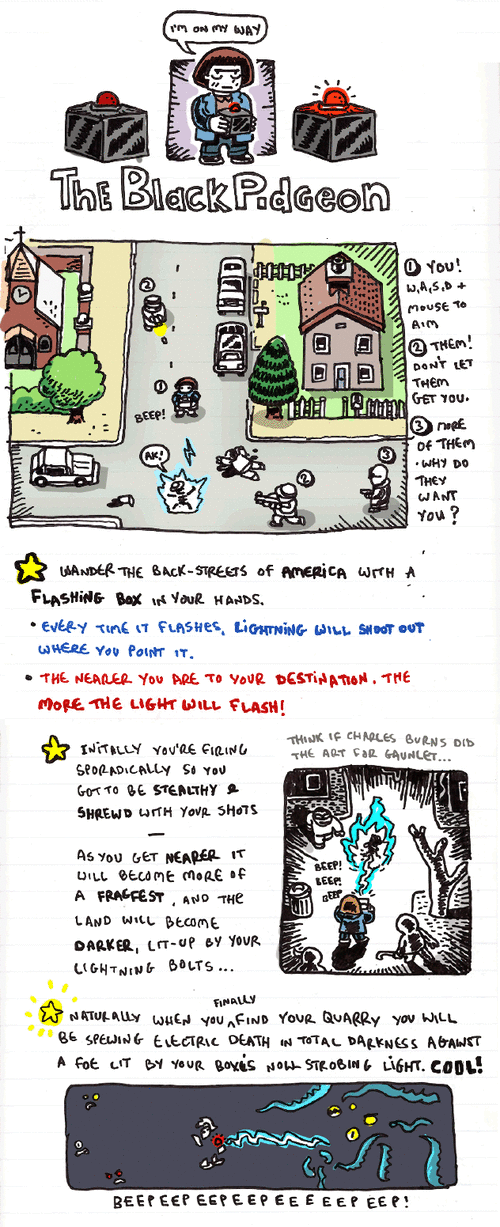 I'M ON MY WAY
THE BLACK PIDGEON
① YOU!
W,A,S,D +
MOUSE TO
AIM
② THEM!
DON'T LET
THEM
GET YOU.
③ MORE
OF THEM
. WHY DO
THEY
WANT
YOU?
②
①
BEEP!
AK!
②
③
WANDER THE BACK-STREETS OF AMERICA WITH A
FLASHING BOX IN YOUR HANDS.
• EVERY TIME IT FLASHES, LIGHTNING WILL SHOOT OUT
WHERE YOU POINT IT.
• THE NEARER YOU ARE TO YOUR DESTINATION, THE
MORE THE LIGHT WILL FLASH!
INITALLY YOU'RE FIRING
SPORADICALLY SO YOU
GOT TO BE STEALTHY &
SHREWD WITH YOUR SHOTS
—
AS YOU GET NEARER IT
WILL BECOME MORE OF
A FRAGFEST, AND THE
LAND WILL BECOME
DARKER, LIT-UP BY YOUR
LIGHTNING BOLTS...
THINK IF CHARLES BURNS DID
THE ART FOR GAUNLET...
BEEP!
BEEP!
BEEP
NATURALLY WHEN YOU FINALLY FIND YOUR QUARRY YOU WILL
BE SPEWING ELECTRIC DEATH IN TOTAL DARKNESS AGAINST
A FOE LIT BY YOUR BOXES NOW STROBING LIGHT. COOL!
BEEPEEPEEPEEPEEEEEPEEP!